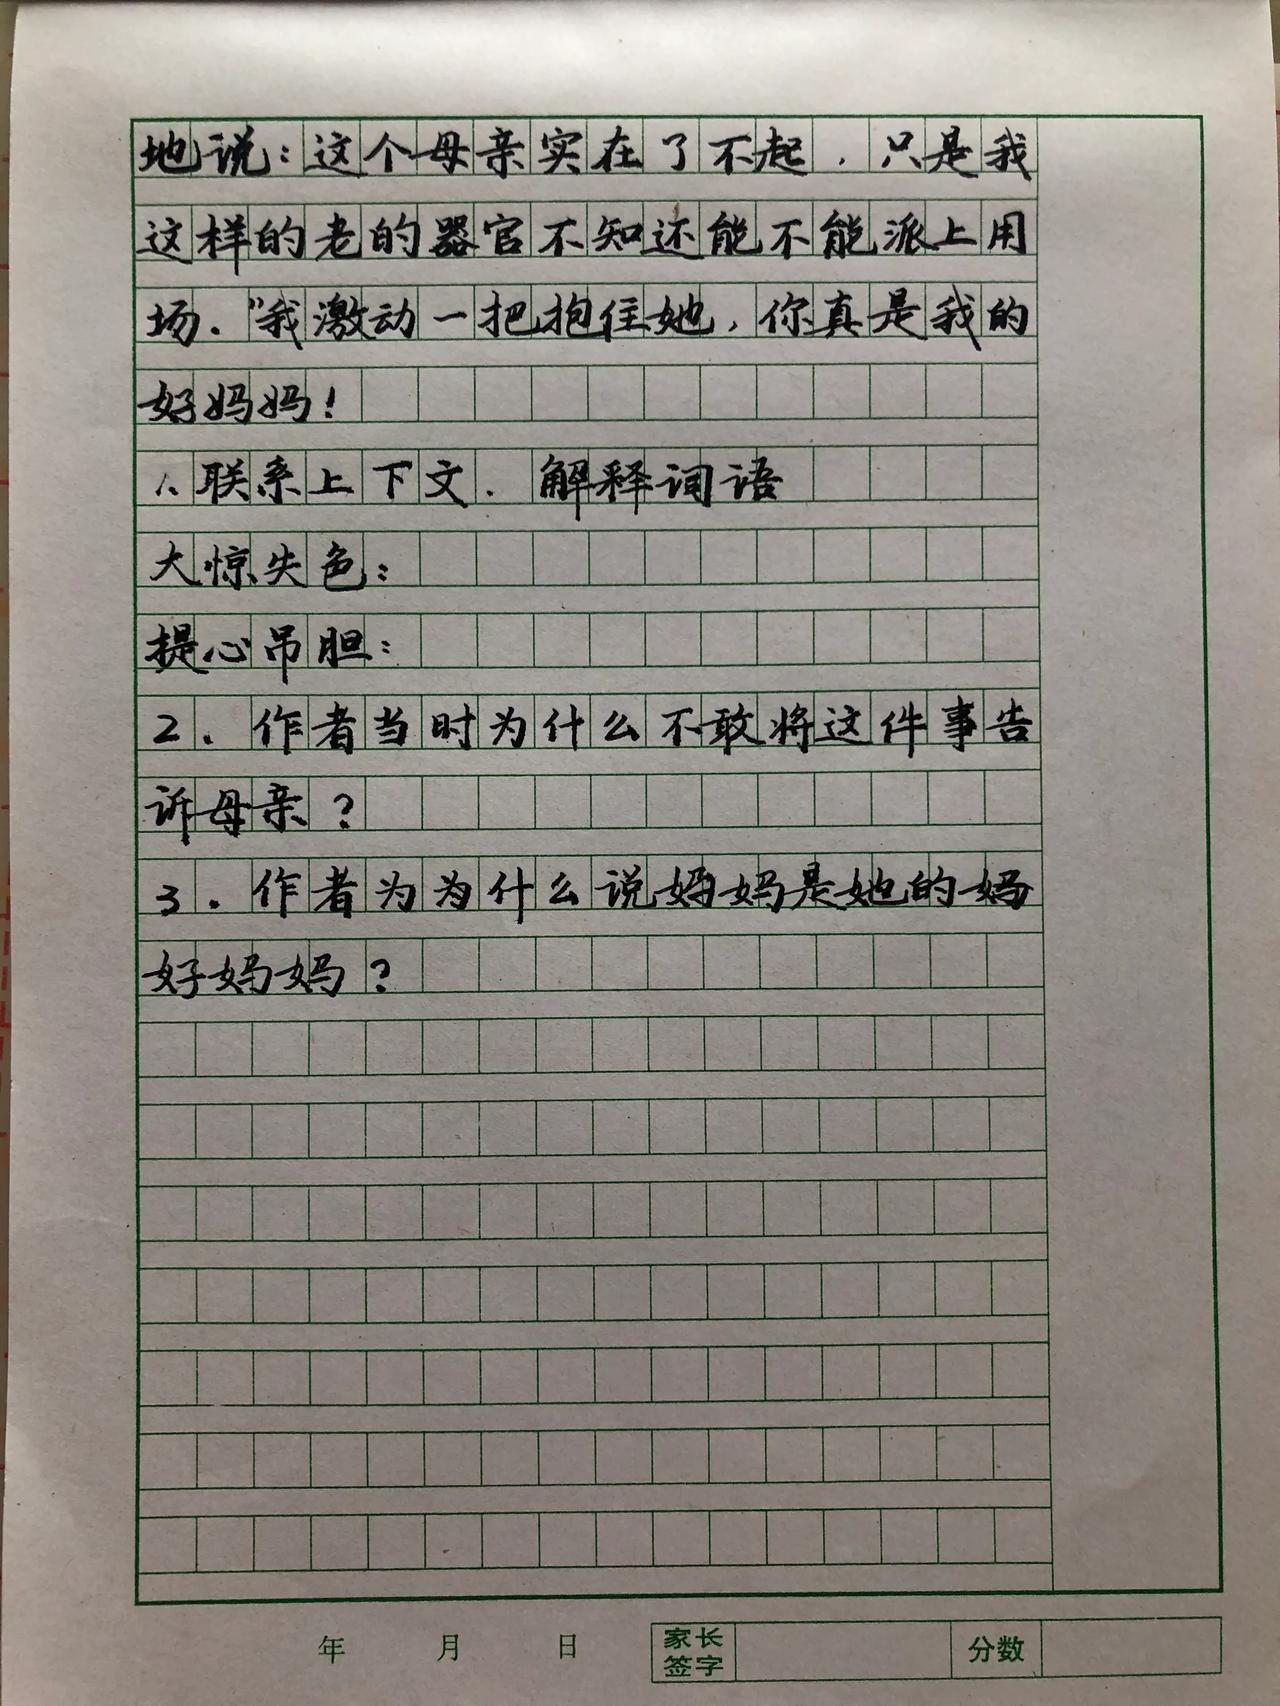 地说：这个母亲实在了不起，只是我
这样的老的器官不知还能不能派上用
场。"我激动一把抱住她，你真是我的
好妈妈！
1.联系上下文.解释词语
大惊失色：
提心吊胆：
2.作者当时为什么不敢将这件事告
诉母亲？
3.作者为为什么说妈妈是她的妈
好妈妈？
年 月 日 家长签字 分数